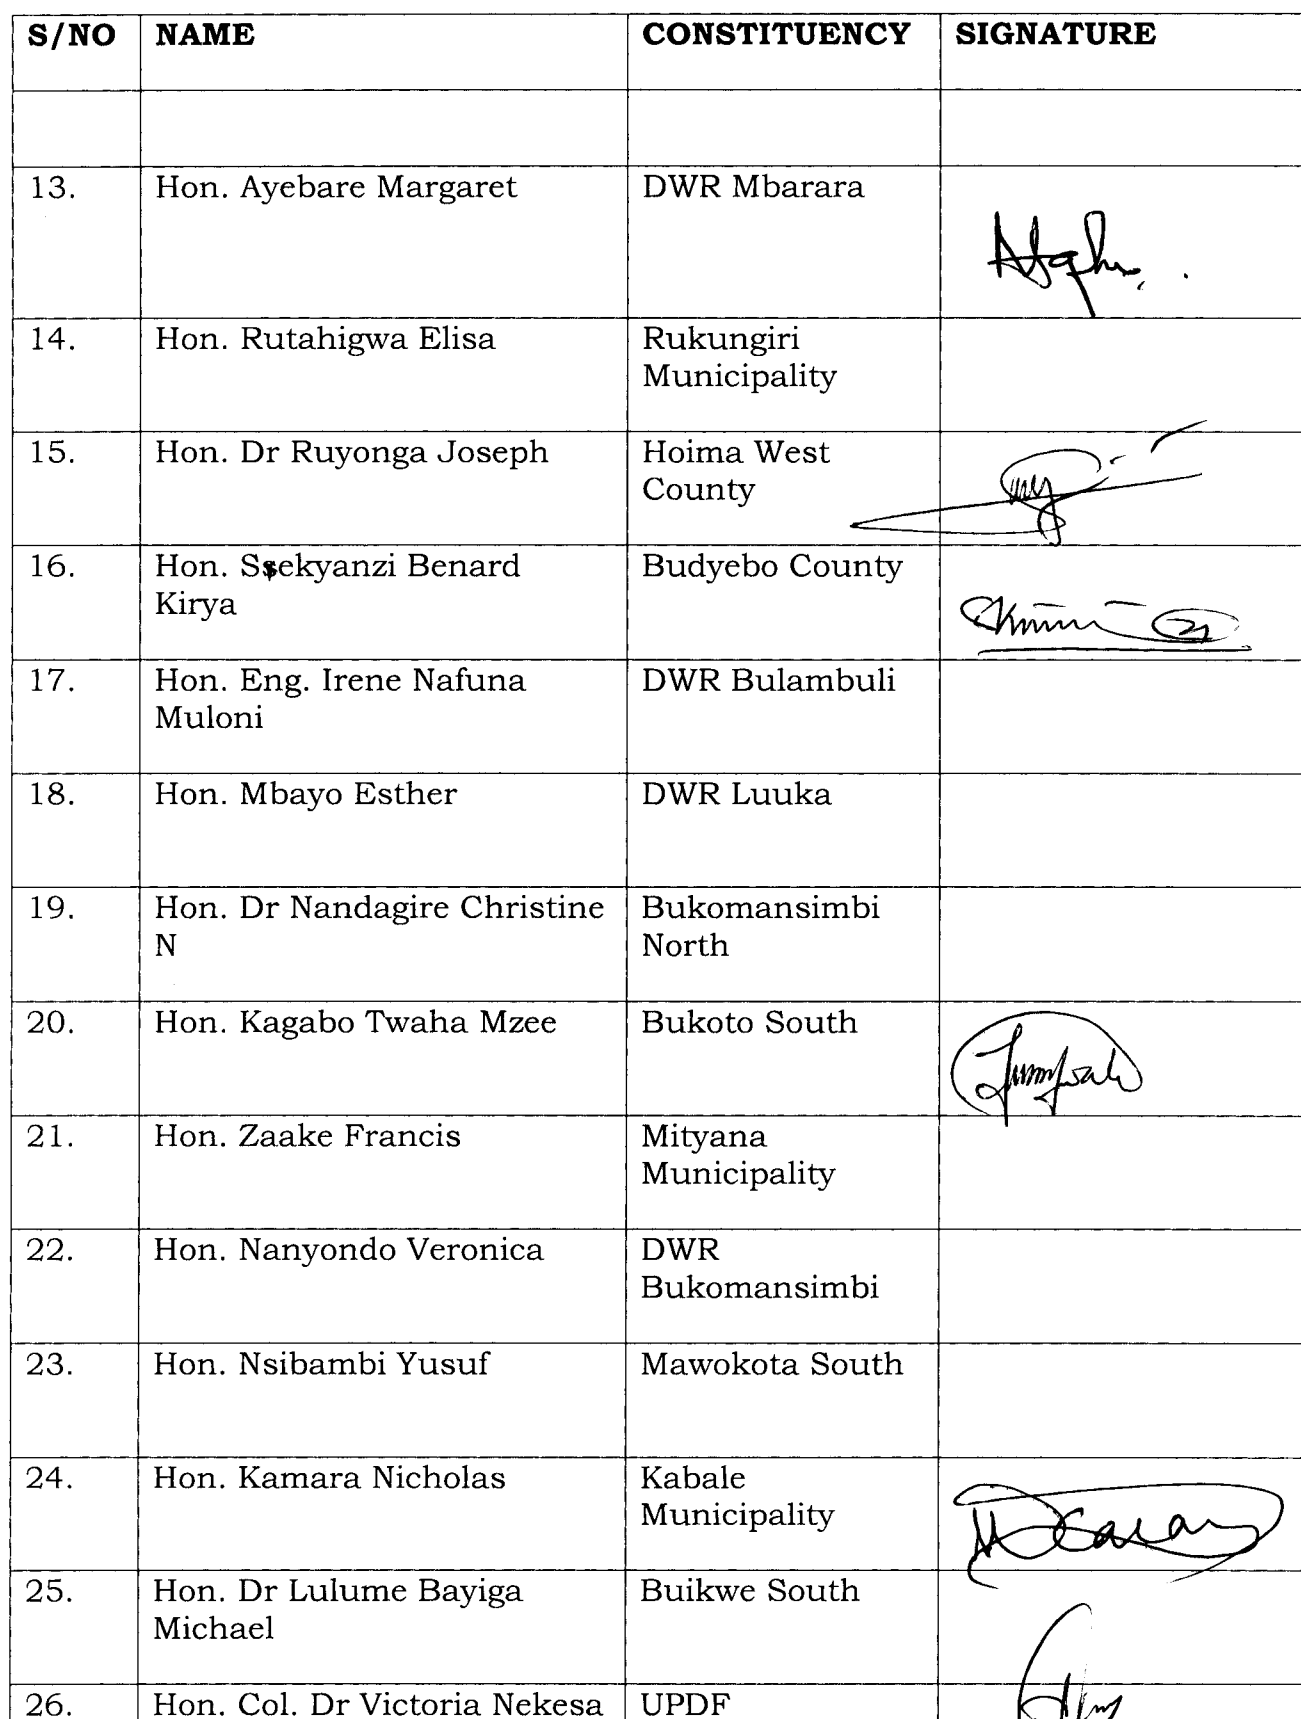 S/NO NAME CONSTITUENCY SIGNATURE
13. Hon. Ayebare Margaret DWR Mbarara
14. Hon. Rutahigwa Elisa Rukungiri
Municipality
15. Hon. Dr Ruyonga Joseph Hoima West
County
16. Hon. Ssekyanzi Benard Budyebo County
Kirya
17. Hon. Eng. Irene Nafuna DWR Bulambuli
Muloni
18. Hon. Mbayo Esther DWR Luuka
19. Hon. Dr Nandagire Christine Bukomansimbi
N North
20. Hon. Kagabo Twaha Mzee Bukoto South
21. Hon. Zaake Francis Mityana
Municipality
22. Hon. Nanyondo Veronica DWR
Bukomansimbi
23. Hon. Nsibambi Yusuf Mawokota South
24. Hon. Kamara Nicholas Kabale
Municipality
25. Hon. Dr Lulume Bayiga Buikwe South
Michael
26. Hon. Col. Dr Victoria Nekesa UPDF